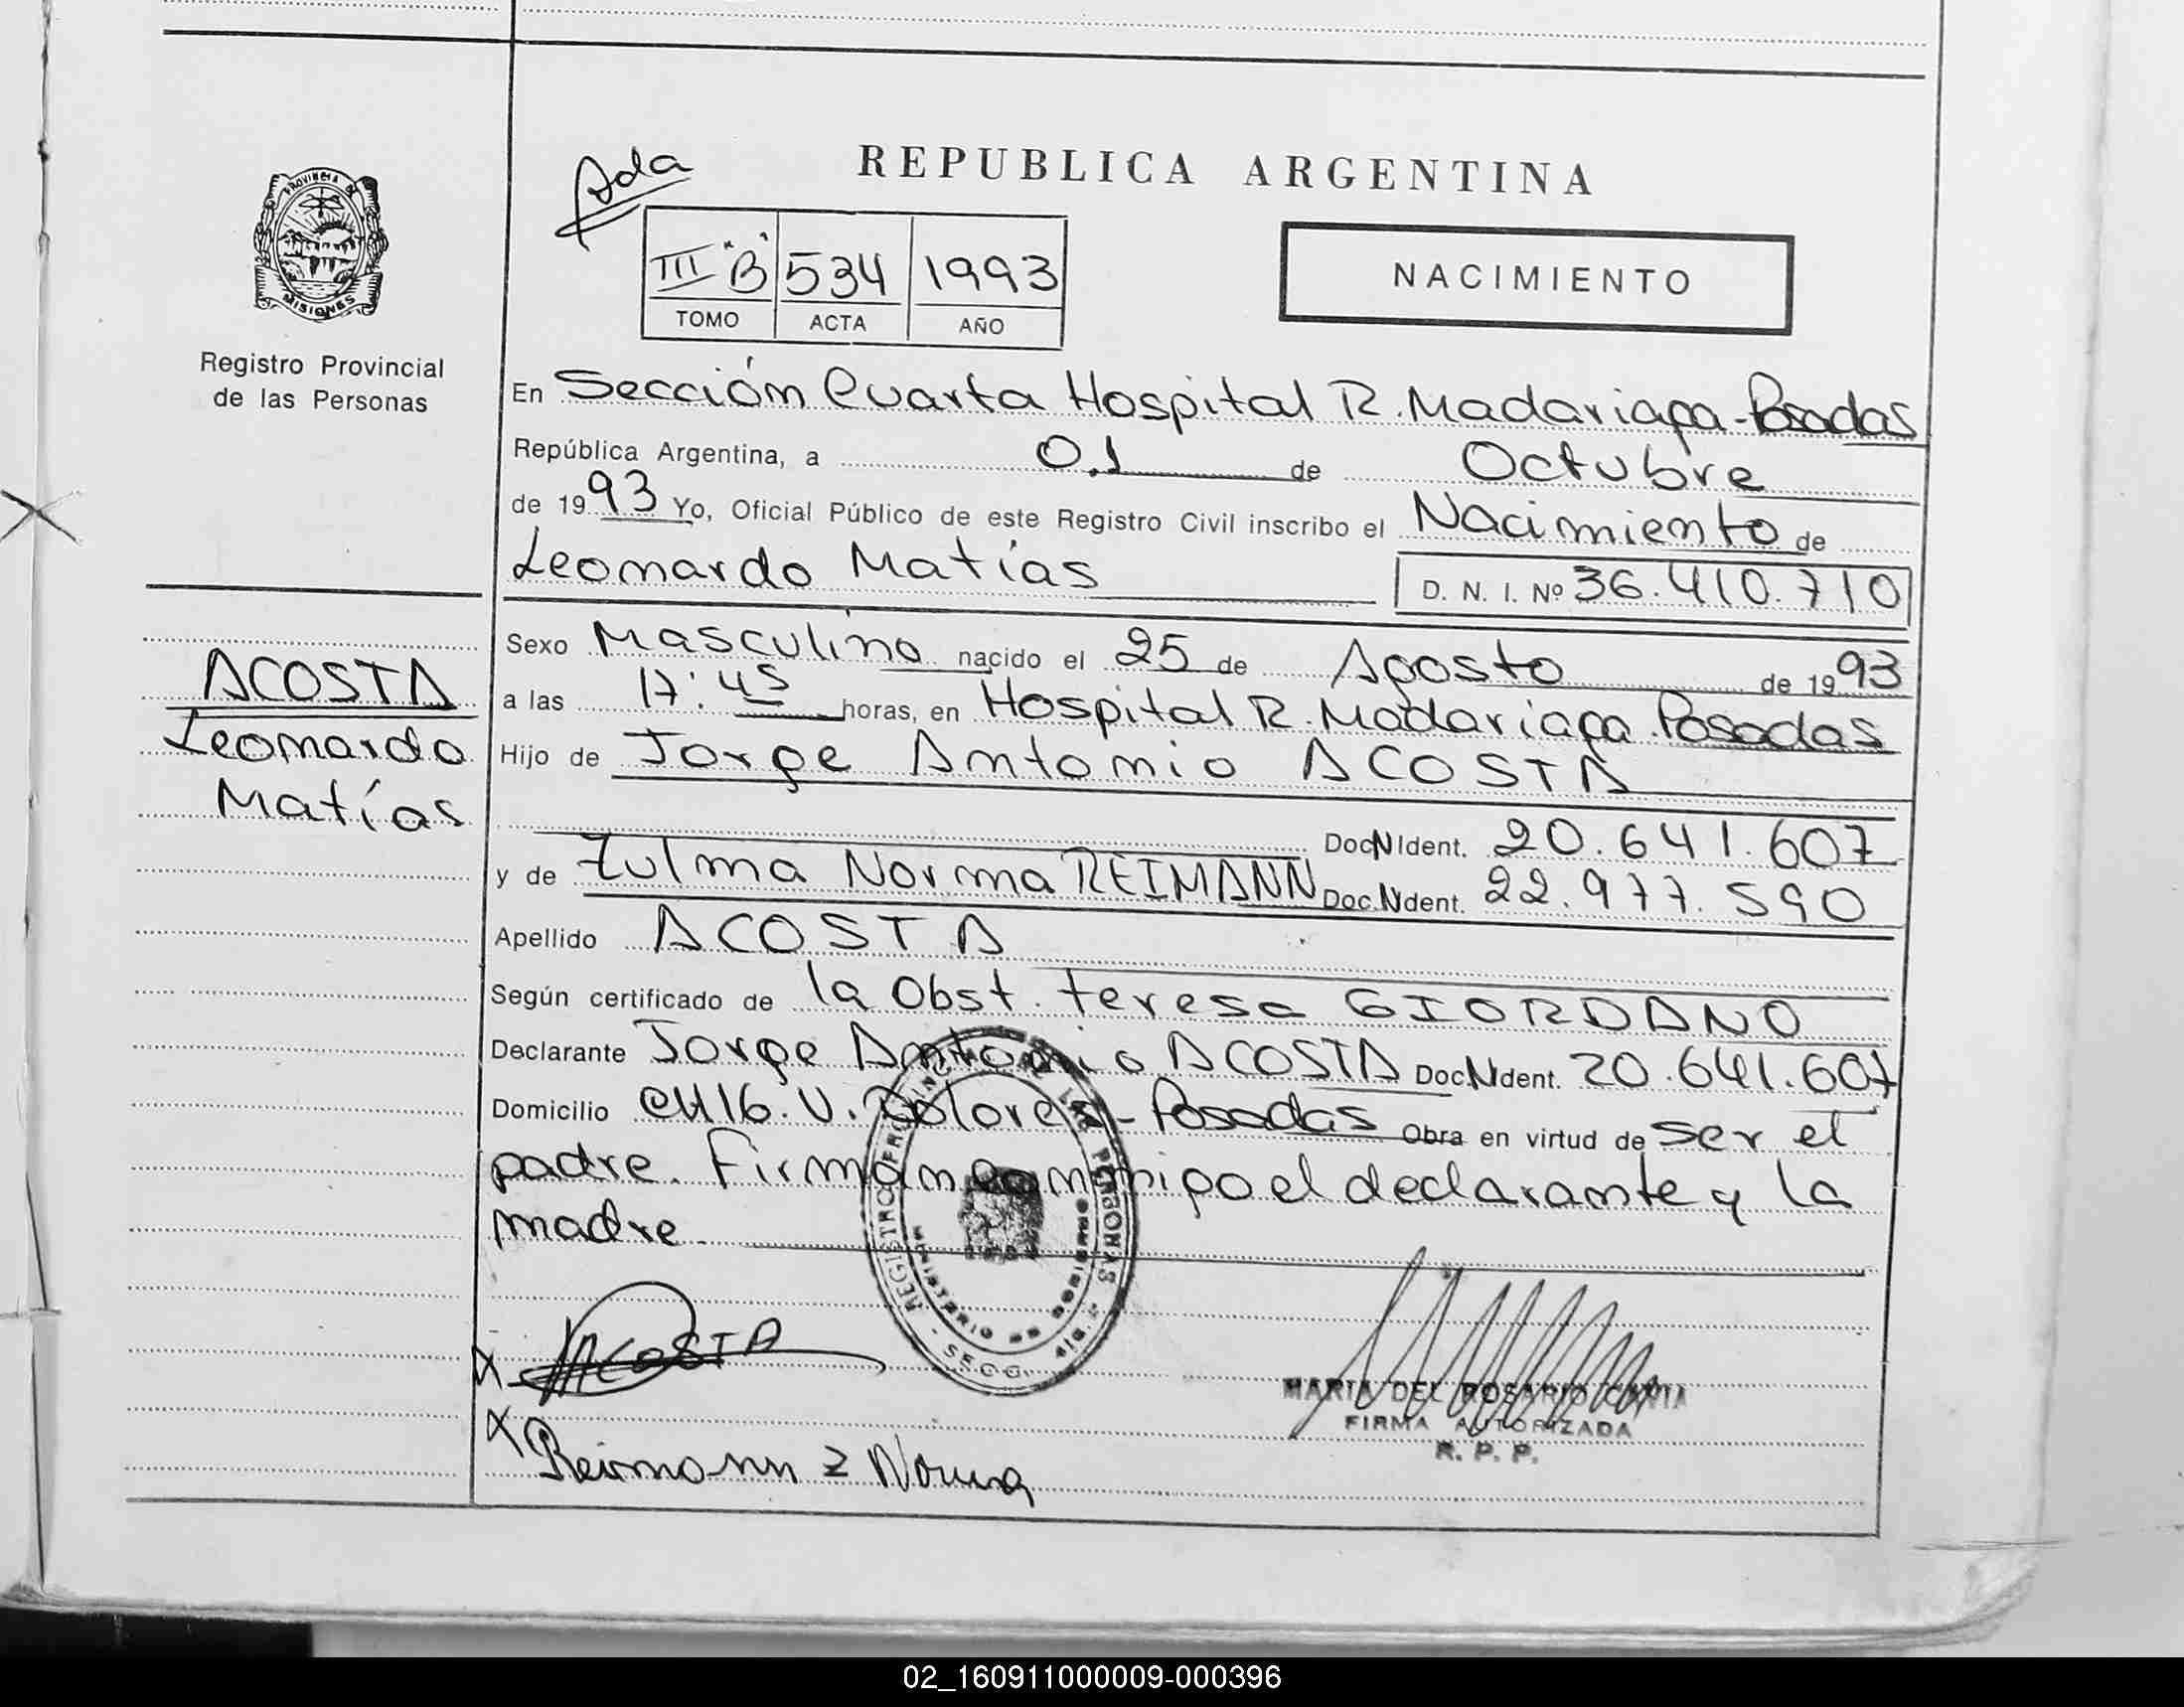 Ada
REPUBLICA ARGENTINA
PROVINCIA DE
MISIONES
Registro Provincial
de las Personas
III "B" 534 1993
TOMO ACTA AÑO
NACIMIENTO
En Sección Cuarta Hospital R. Madariaga - Posadas
República Argentina, a 01 de Octubre
de 1993 Yo, Oficial Público de este Registro Civil inscribo el Nacimiento de
Leonardo Matías D. N. I. Nº 36.410.710
ACOSTA
Leonardo
Matías
Sexo Masculino nacido el 25 de Agosto de 1993
a las 17:45 horas, en Hospital R. Madariaga. Posadas
Hijo de Jorge Antonio ACOSTA
Doc N Ident. 20.641.607
y de Zulma Norma REIMANN Doc. N Ident. 22.977.590
Apellido ACOSTA
Según certificado de la Obst. Teresa GIORDANO
Declarante Jorge Antonio ACOSTA Doc N Ident. 20.641.607
Domicilio CH16. V. Dolores - Posadas Obra en virtud de ser el
padre. Firman conmigo el declarante y la
madre.
REGISTRO PROVINCIAL DE LAS PERSONAS
MINISTERIO DE GOBIERNO
X ACOSTA
MARIA DEL ROSARIO
FIRMA AUTORIZADA
R. P. P.
X Reimann Z Norma
02_160911000009-000396